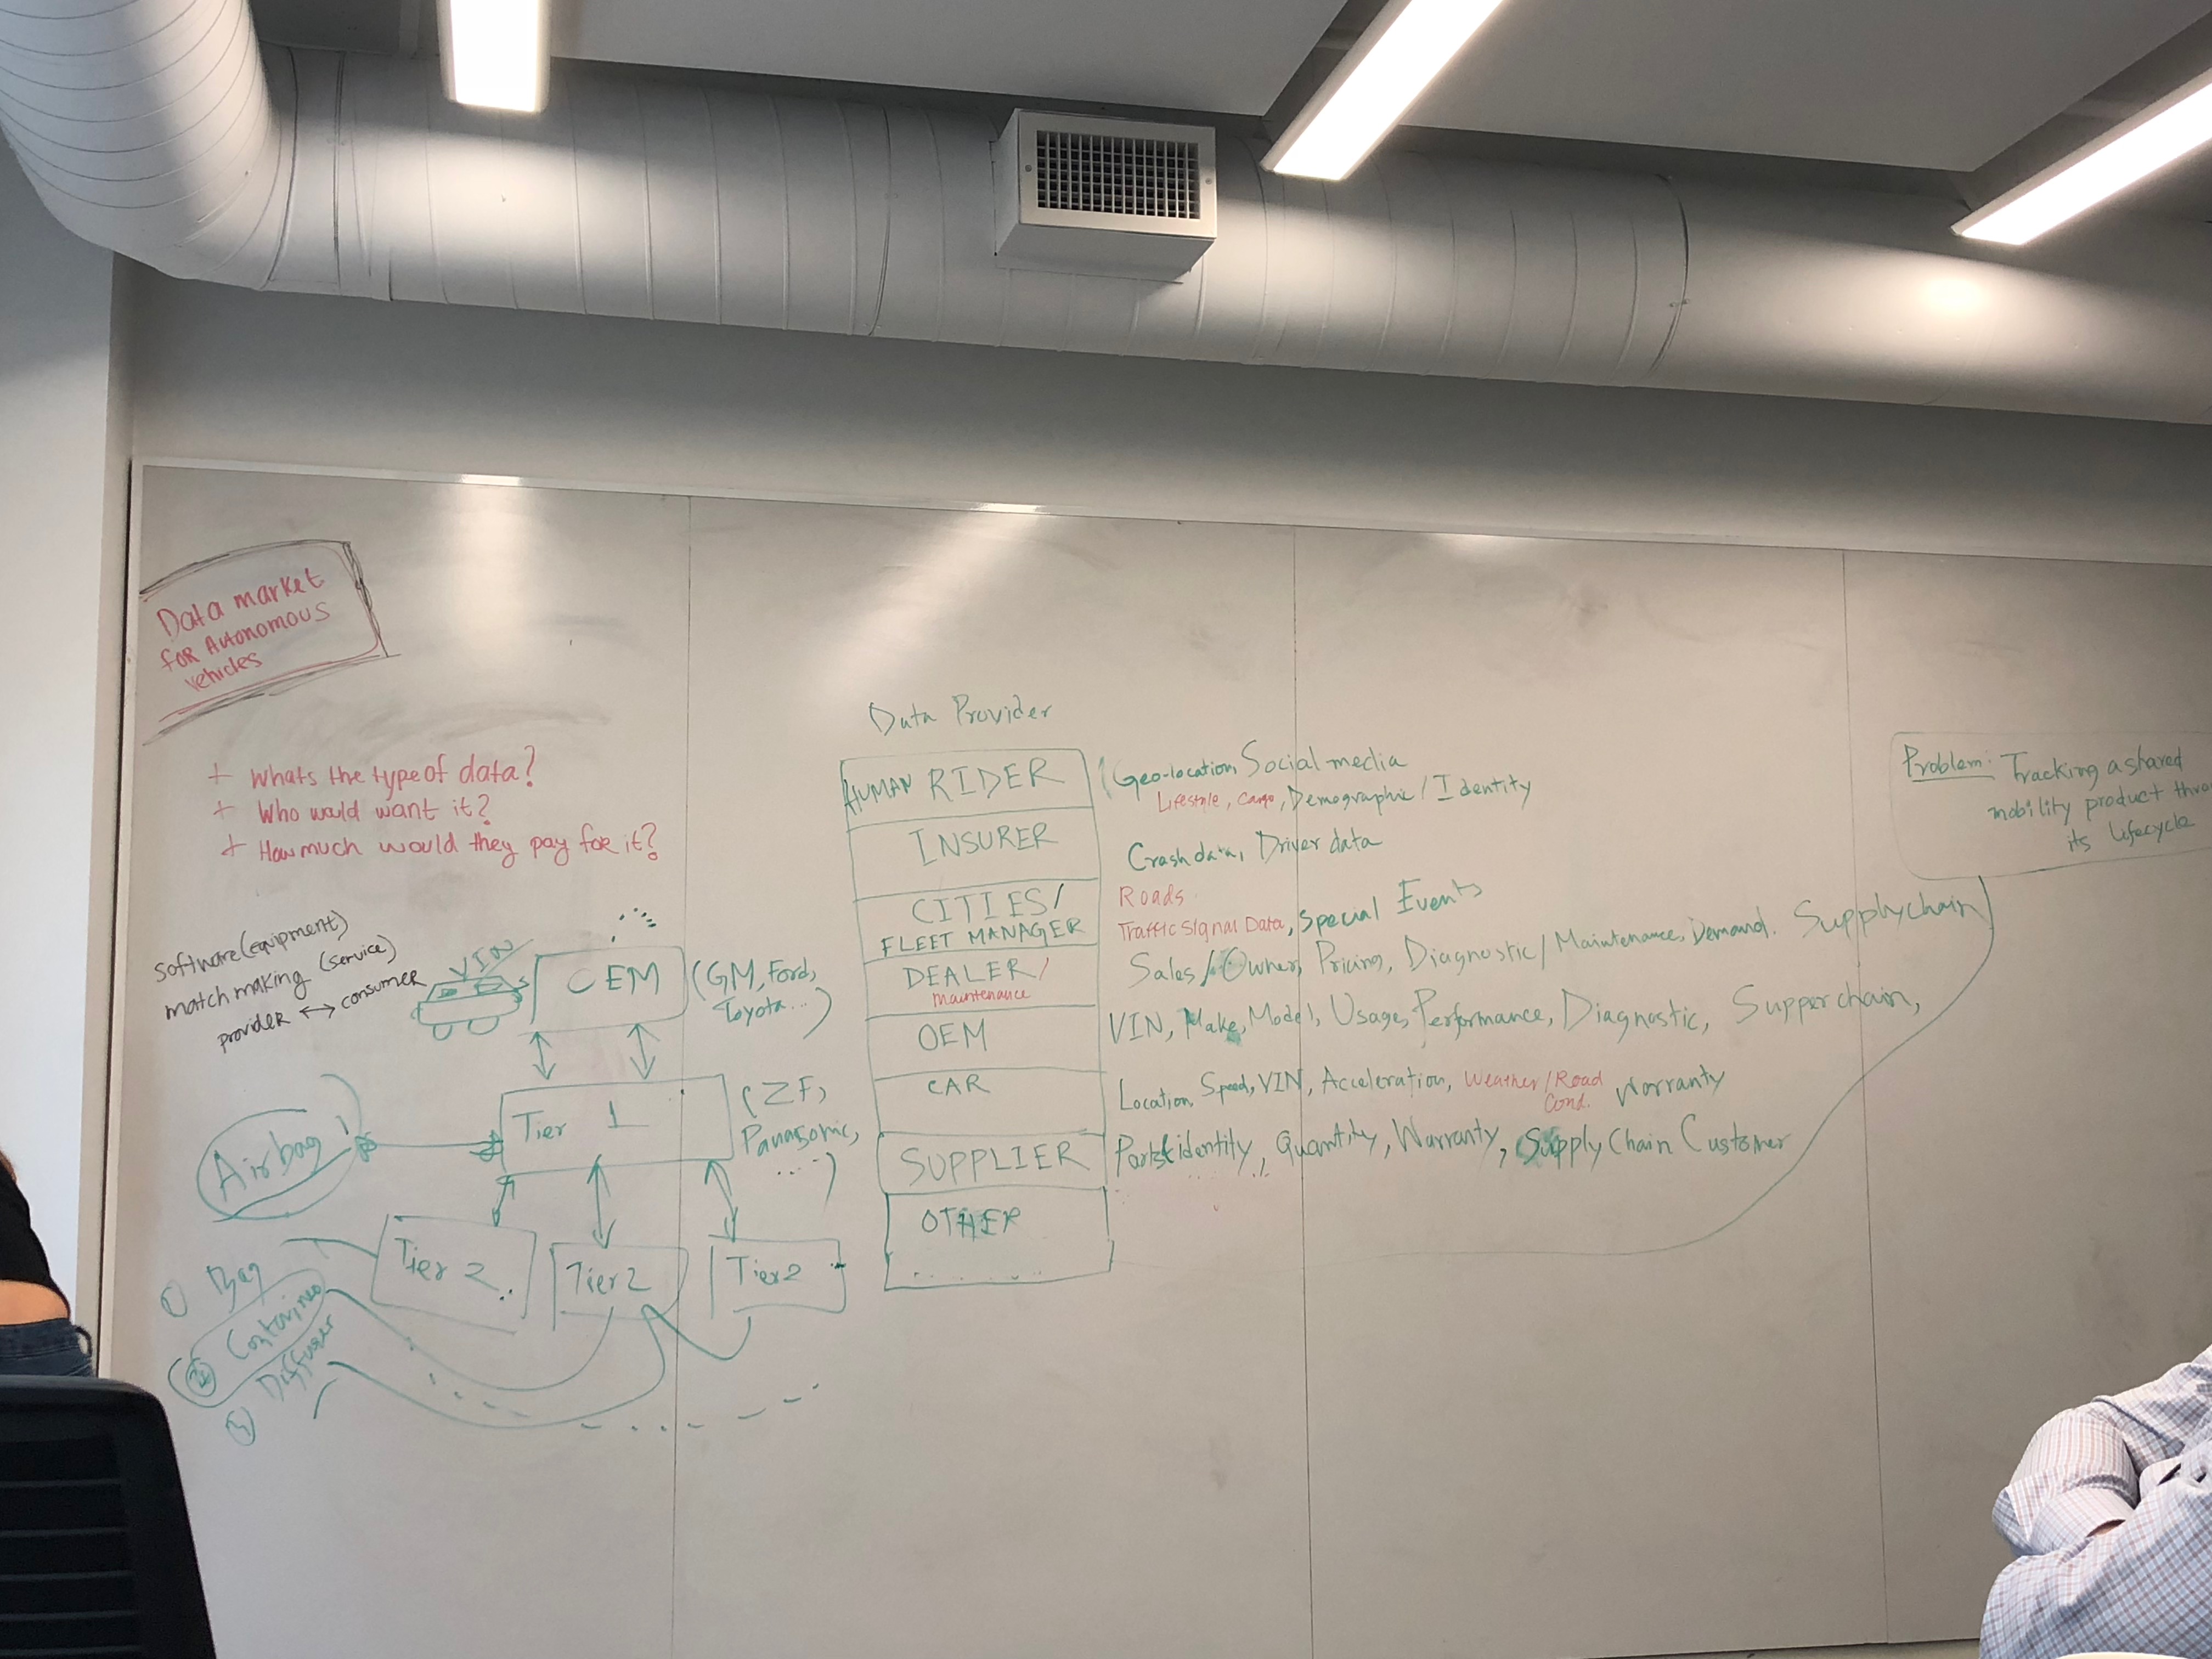 Data market
for Autonomous
vehicles
+ Whats the type of data?
+ Who would want it?
+ How much would they pay for it?
Software (equipment)
match making (service)
provider ↔ consumer
VIN
OEM
(GM, Ford,
Toyota...)
Tier 1
(ZF,
Panasonic,
....)
Airbag
Tier 2
Tier 2
Tier 2
1 Bag
2
Diffuser
3
Data Provider
HUMAN RIDER
Geo-location, Social media
Lifestyle, Cargo, Demographic / Identity
INSURER
Crash data, Driver data
CITIES/
FLEET MANAGER
Roads
Traffic Signal Data, Special Events
DEALER/
Maintenance
Sales/Owner, Pricing, Diagnostic/Maintenance, Demand. Supplychain
OEM
VIN, Make, Model, Usage, Performance, Diagnostic, Supperchain,
CAR
Location, Speed, VIN, Acceleration, Weather/Road
Cond.
Warranty
SUPPLIER
identity, Quantity, Warranty, Supply Chain Customer
OTHER
Problem: Tracking a shared
mobility product thro
its lifecycle